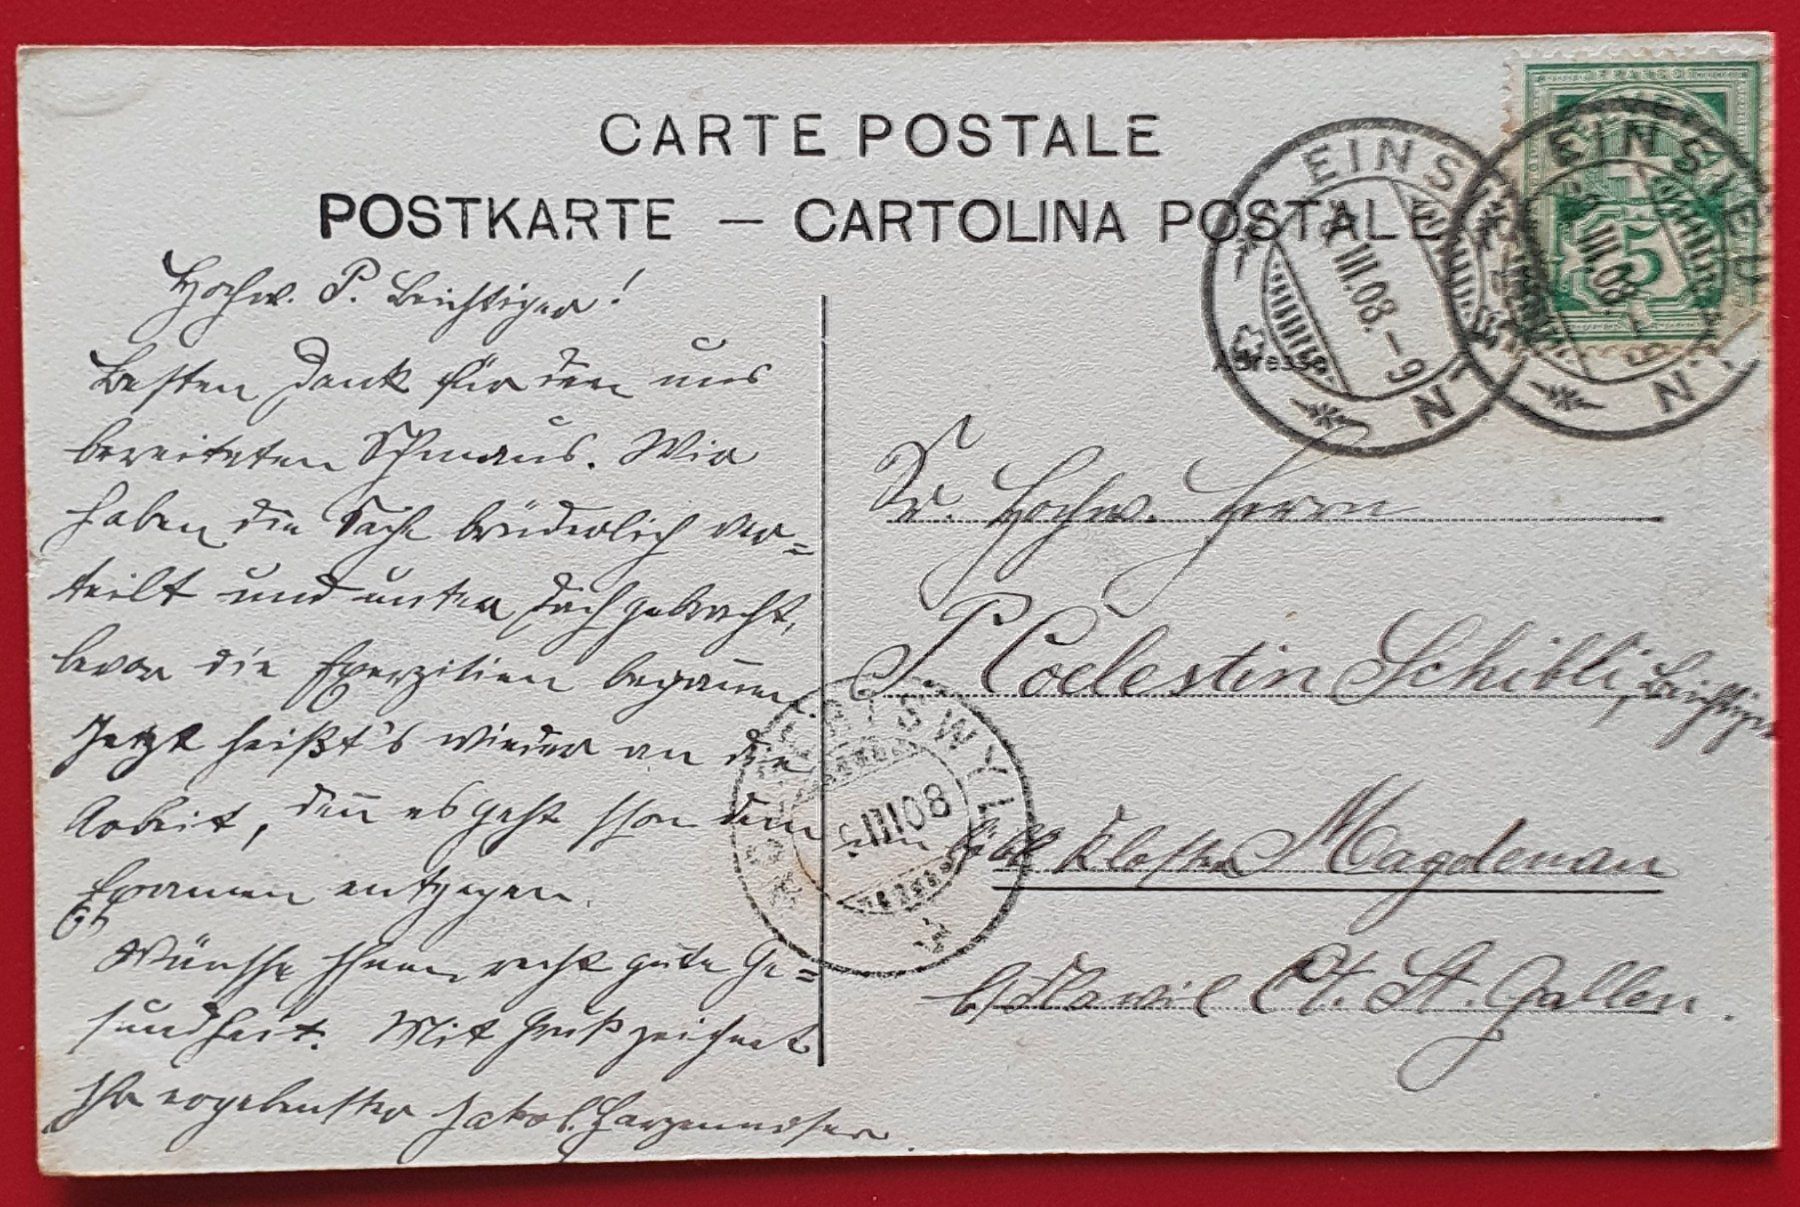 CARTE POSTALE
POSTKARTE — CARTOLINA POSTALE
FRANCO
5
EINSIEDELN
III.08.-9
EINSIEDELN
III.08.-9
Adresse
Hochw. P. Beichtiger!
Besten Dank für den uns
bereiteten Schmaus. Wir
haben die Sache brüderlich ver=
teilt und unter Dach gebracht,
bevor die Exerzitien begannen.
Jetzt heißt's wieder an die
Arbeit, denn es geht schon dem
Examen entgegen.
Wünsche Ihnen recht gute Ge=
sundheit. Mit Gruß zeichnet
Ihr ergebenster Jakob
Sr. Hochw. Herrn
P. Coelestin Schibli, Beichtiger
löbl. Kloster Magdenau
b/Flawil Ct. St. Gallen.
III 08